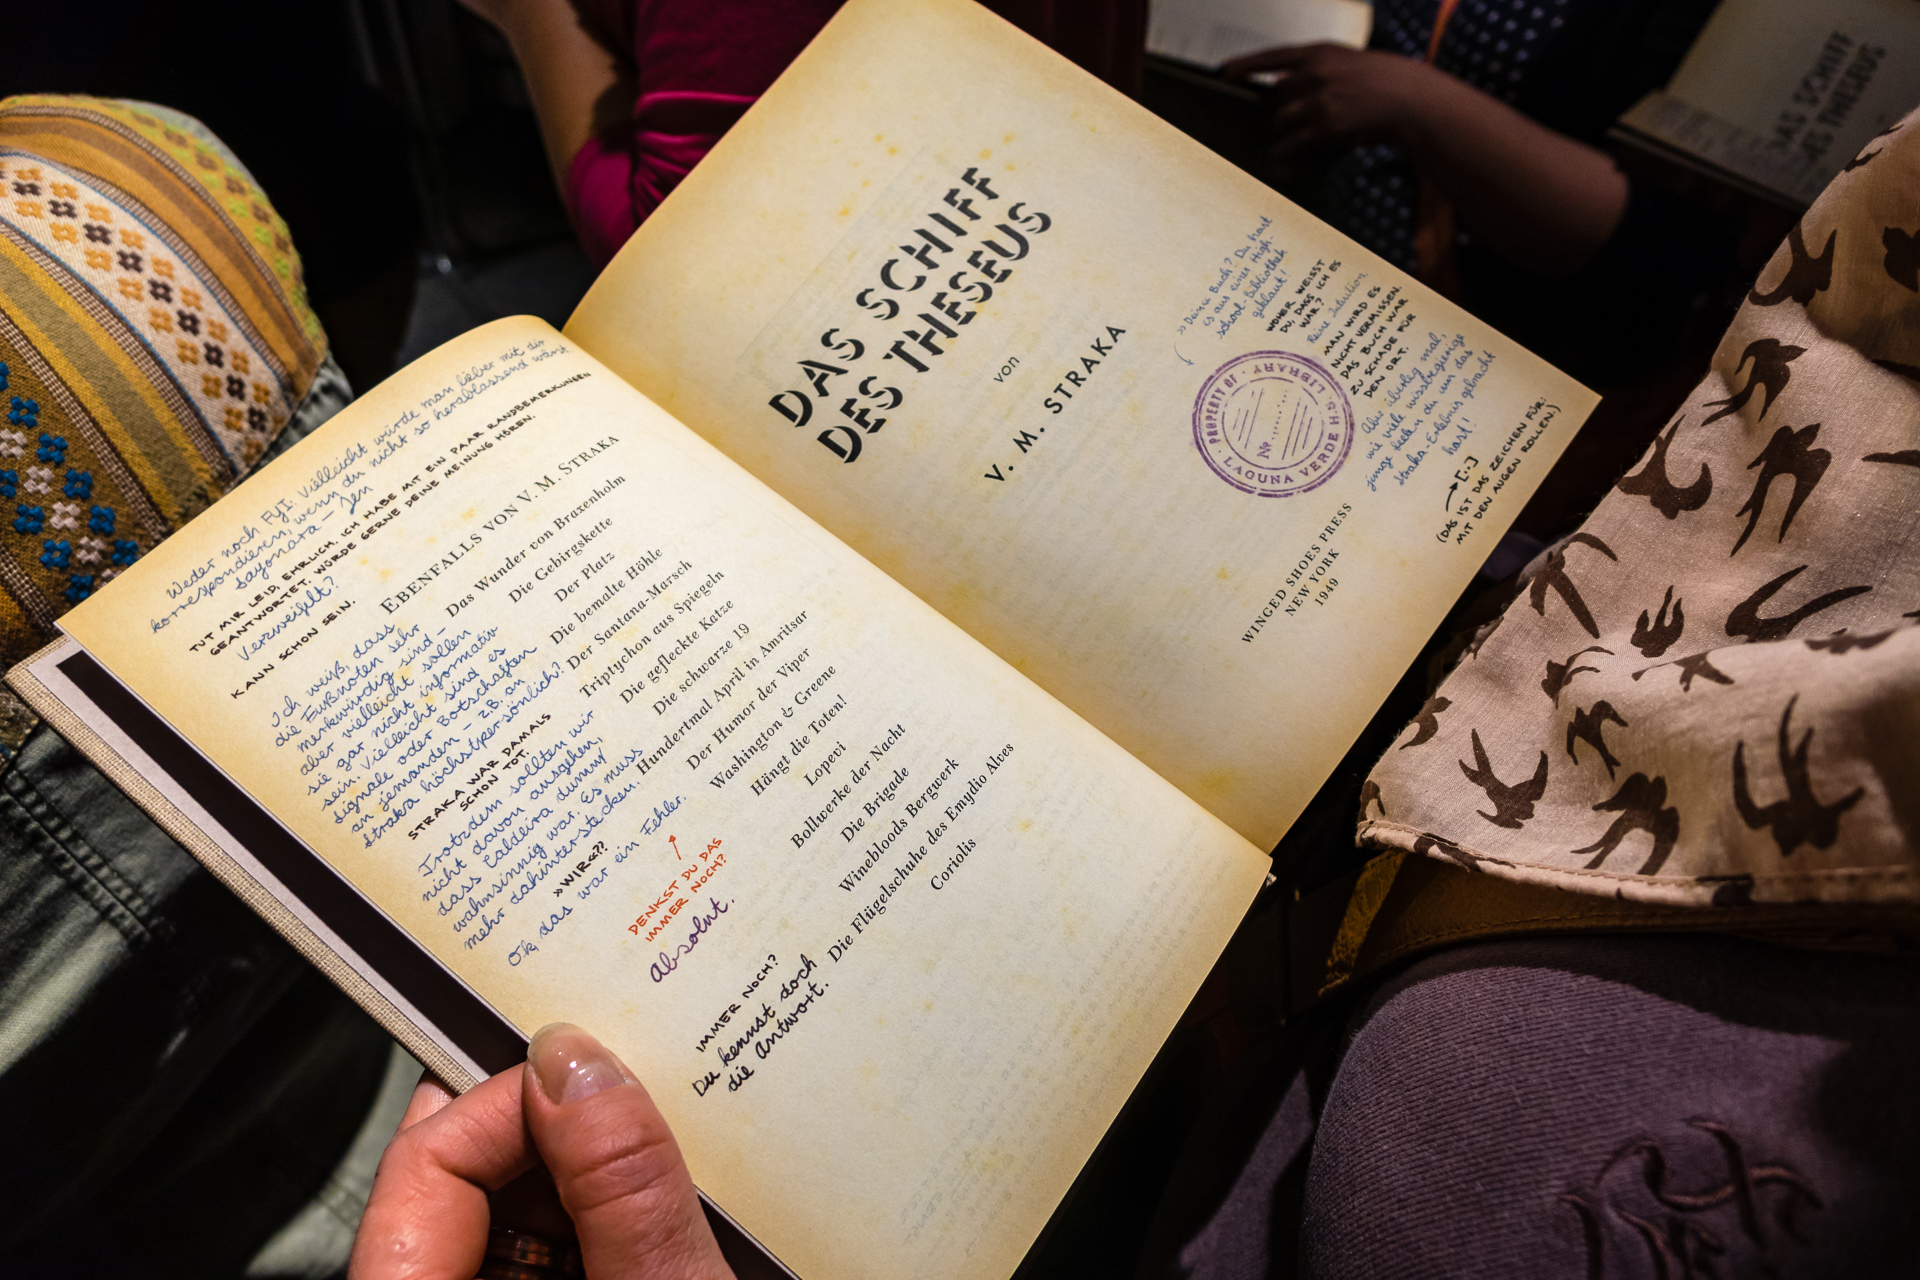 Weder noch FYI: Vielleicht würde man lieber mit dir
korrespondieren, wenn du nicht so herablassend wärst
Sayonara – Jen
TUT MIR LEID, EHRLICH. ICH HABE MIT EIN PAAR RANDBEMERKUNGEN
GEANTWORTET. WÜRDE GERNE DEINE MEINUNG HÖREN.
Verzweifelt?
KANN SCHON SEIN.
Ich weiß, dass
die Fußnoten sehr
merkwürdig sind –
aber vielleicht sollen
sie gar nicht informativ
sein. Vielleicht sind es
Signale oder Botschaften
an jemanden – z.B. an
Straka höchstpersönlich?
STRAKA WAR DAMALS
SCHON TOT.
Trotzdem sollten wir
nicht davon ausgehen,
dass Caldeira dumm/
wahnsinnig war. Es muss
mehr dahinterstecken.
»WIR«??
Ok, das war ein Fehler.
DENKST DU DAS
IMMER NOCH?
Absolut.
IMMER NOCH?
Du kennst doch
die Antwort.
EBENFALLS VON V. M. STRAKA
Das Wunder von Braxenholm
Die Gebirgskette
Der Platz
Die bemalte Höhle
Der Santana-Marsch
Triptychon aus Spiegeln
Die gefleckte Katze
Die schwarze 19
Hundertmal April in Amritsar
Der Humor der Viper
Washington & Greene
Hängt die Toten!
Lopevi
Bollwerke der Nacht
Die Brigade
Winebloods Bergwerk
Die Flügelschuhe des Emydio Alves
Coriolis
DAS SCHIFF
DES THESEUS
von
V. M. STRAKA
» Deine Buch? Du hast
es aus einer High-
school-Bibliothek
geklaut!
WOHER WEISST
DU, DASS ICH ES
WAR?
Reine Intuition.
MAN WIRD ES
NICHT VERMISSEN.
DAS BUCH WAR
ZU SCHADE FÜR
DEN ORT.
Aber überleg mal,
wie viele wissbegierige
junge Seelen du um das
Straka-Erlebnis gebracht
hast!
[:·]
(DAS IST DAS ZEICHEN FÜR:
MIT DEN AUGEN ROLLEN.)
PROPERTY OF
LAGUNA VERDE H.S. LIBRARY
№
WINGED SHOES PRESS
NEW YORK
1949
DAS SCHIFF
DES THESEUS